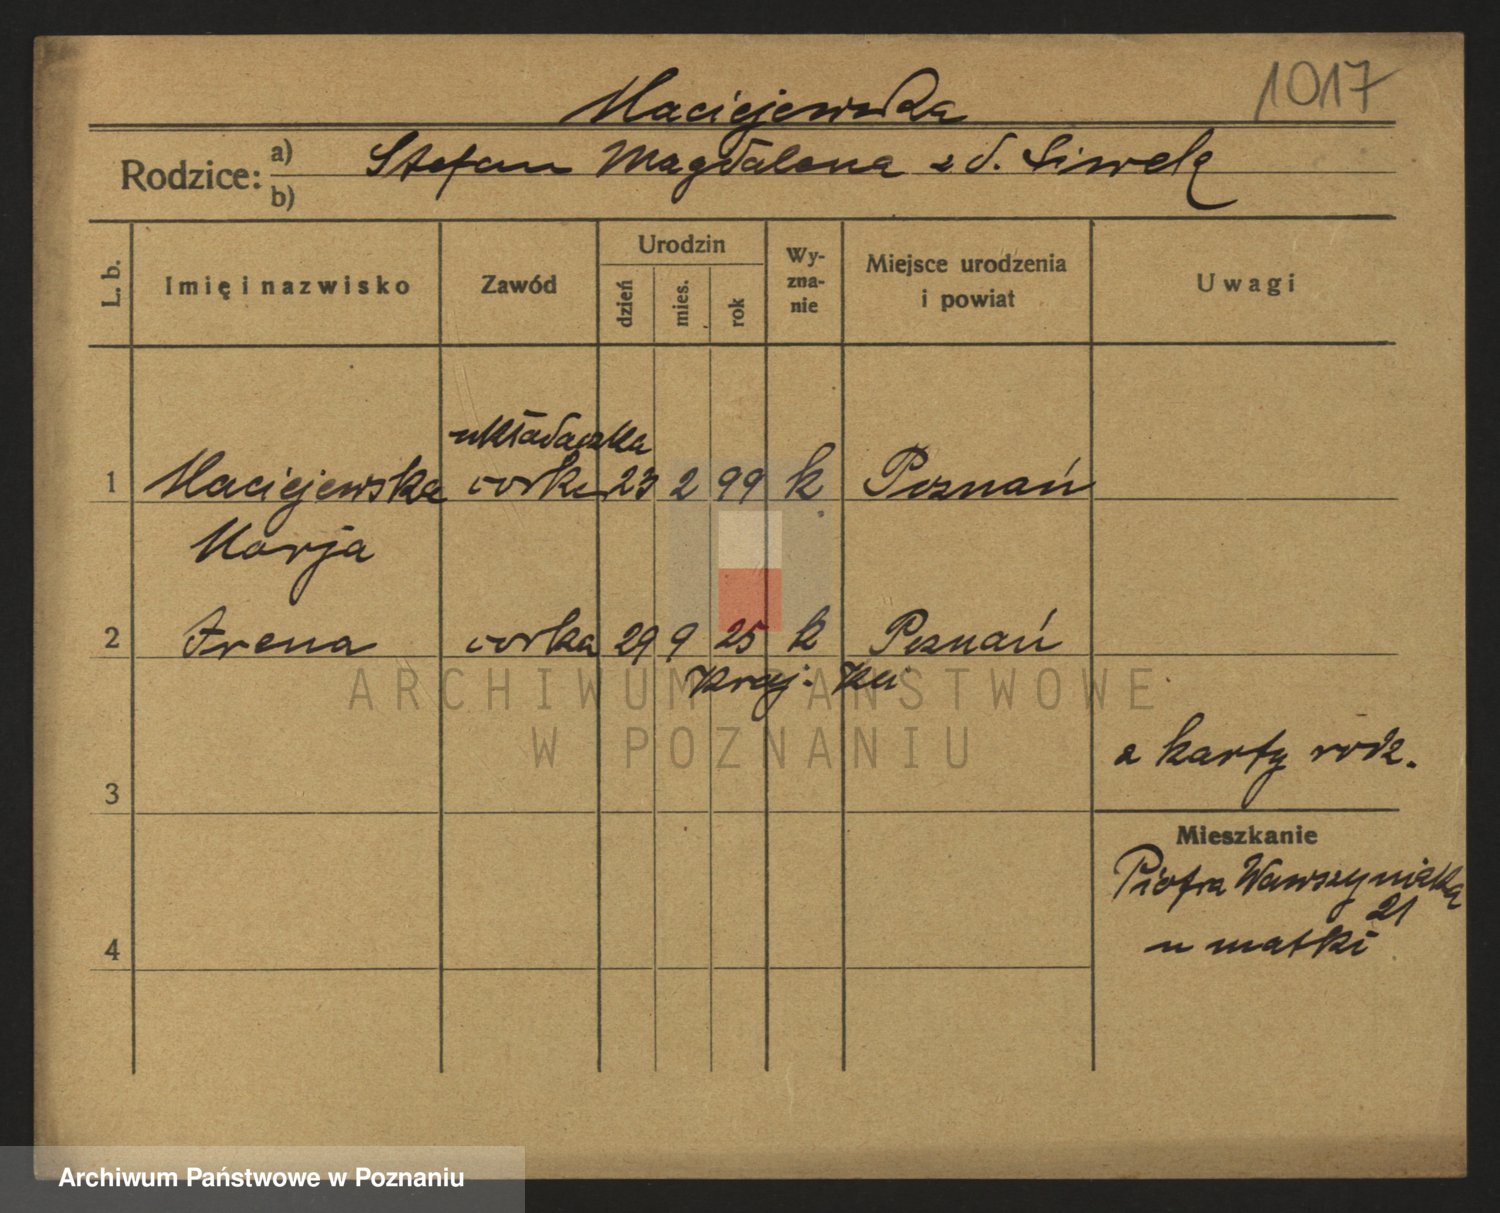 1017
Maciejewska
Rodzice: a) Stefan Magdalena z d. Siwek
b)
L. b. Imię i nazwisko Zawód Urodzin dzień mies. rok Wyznanie Miejsce urodzenia i powiat Uwagi
układaczka
1 Maciejewska córka 23 2 99 k Poznań
Marja
2 Irena córka 29 9 25 k Poznań
kraj.
ARCHIWUM PAŃSTWOWE
W POZNANIU
z karty rodz.
3
Mieszkanie
Piotra Wawrzyniaka
21
4 u matki
Archiwum Państwowe w Poznaniu